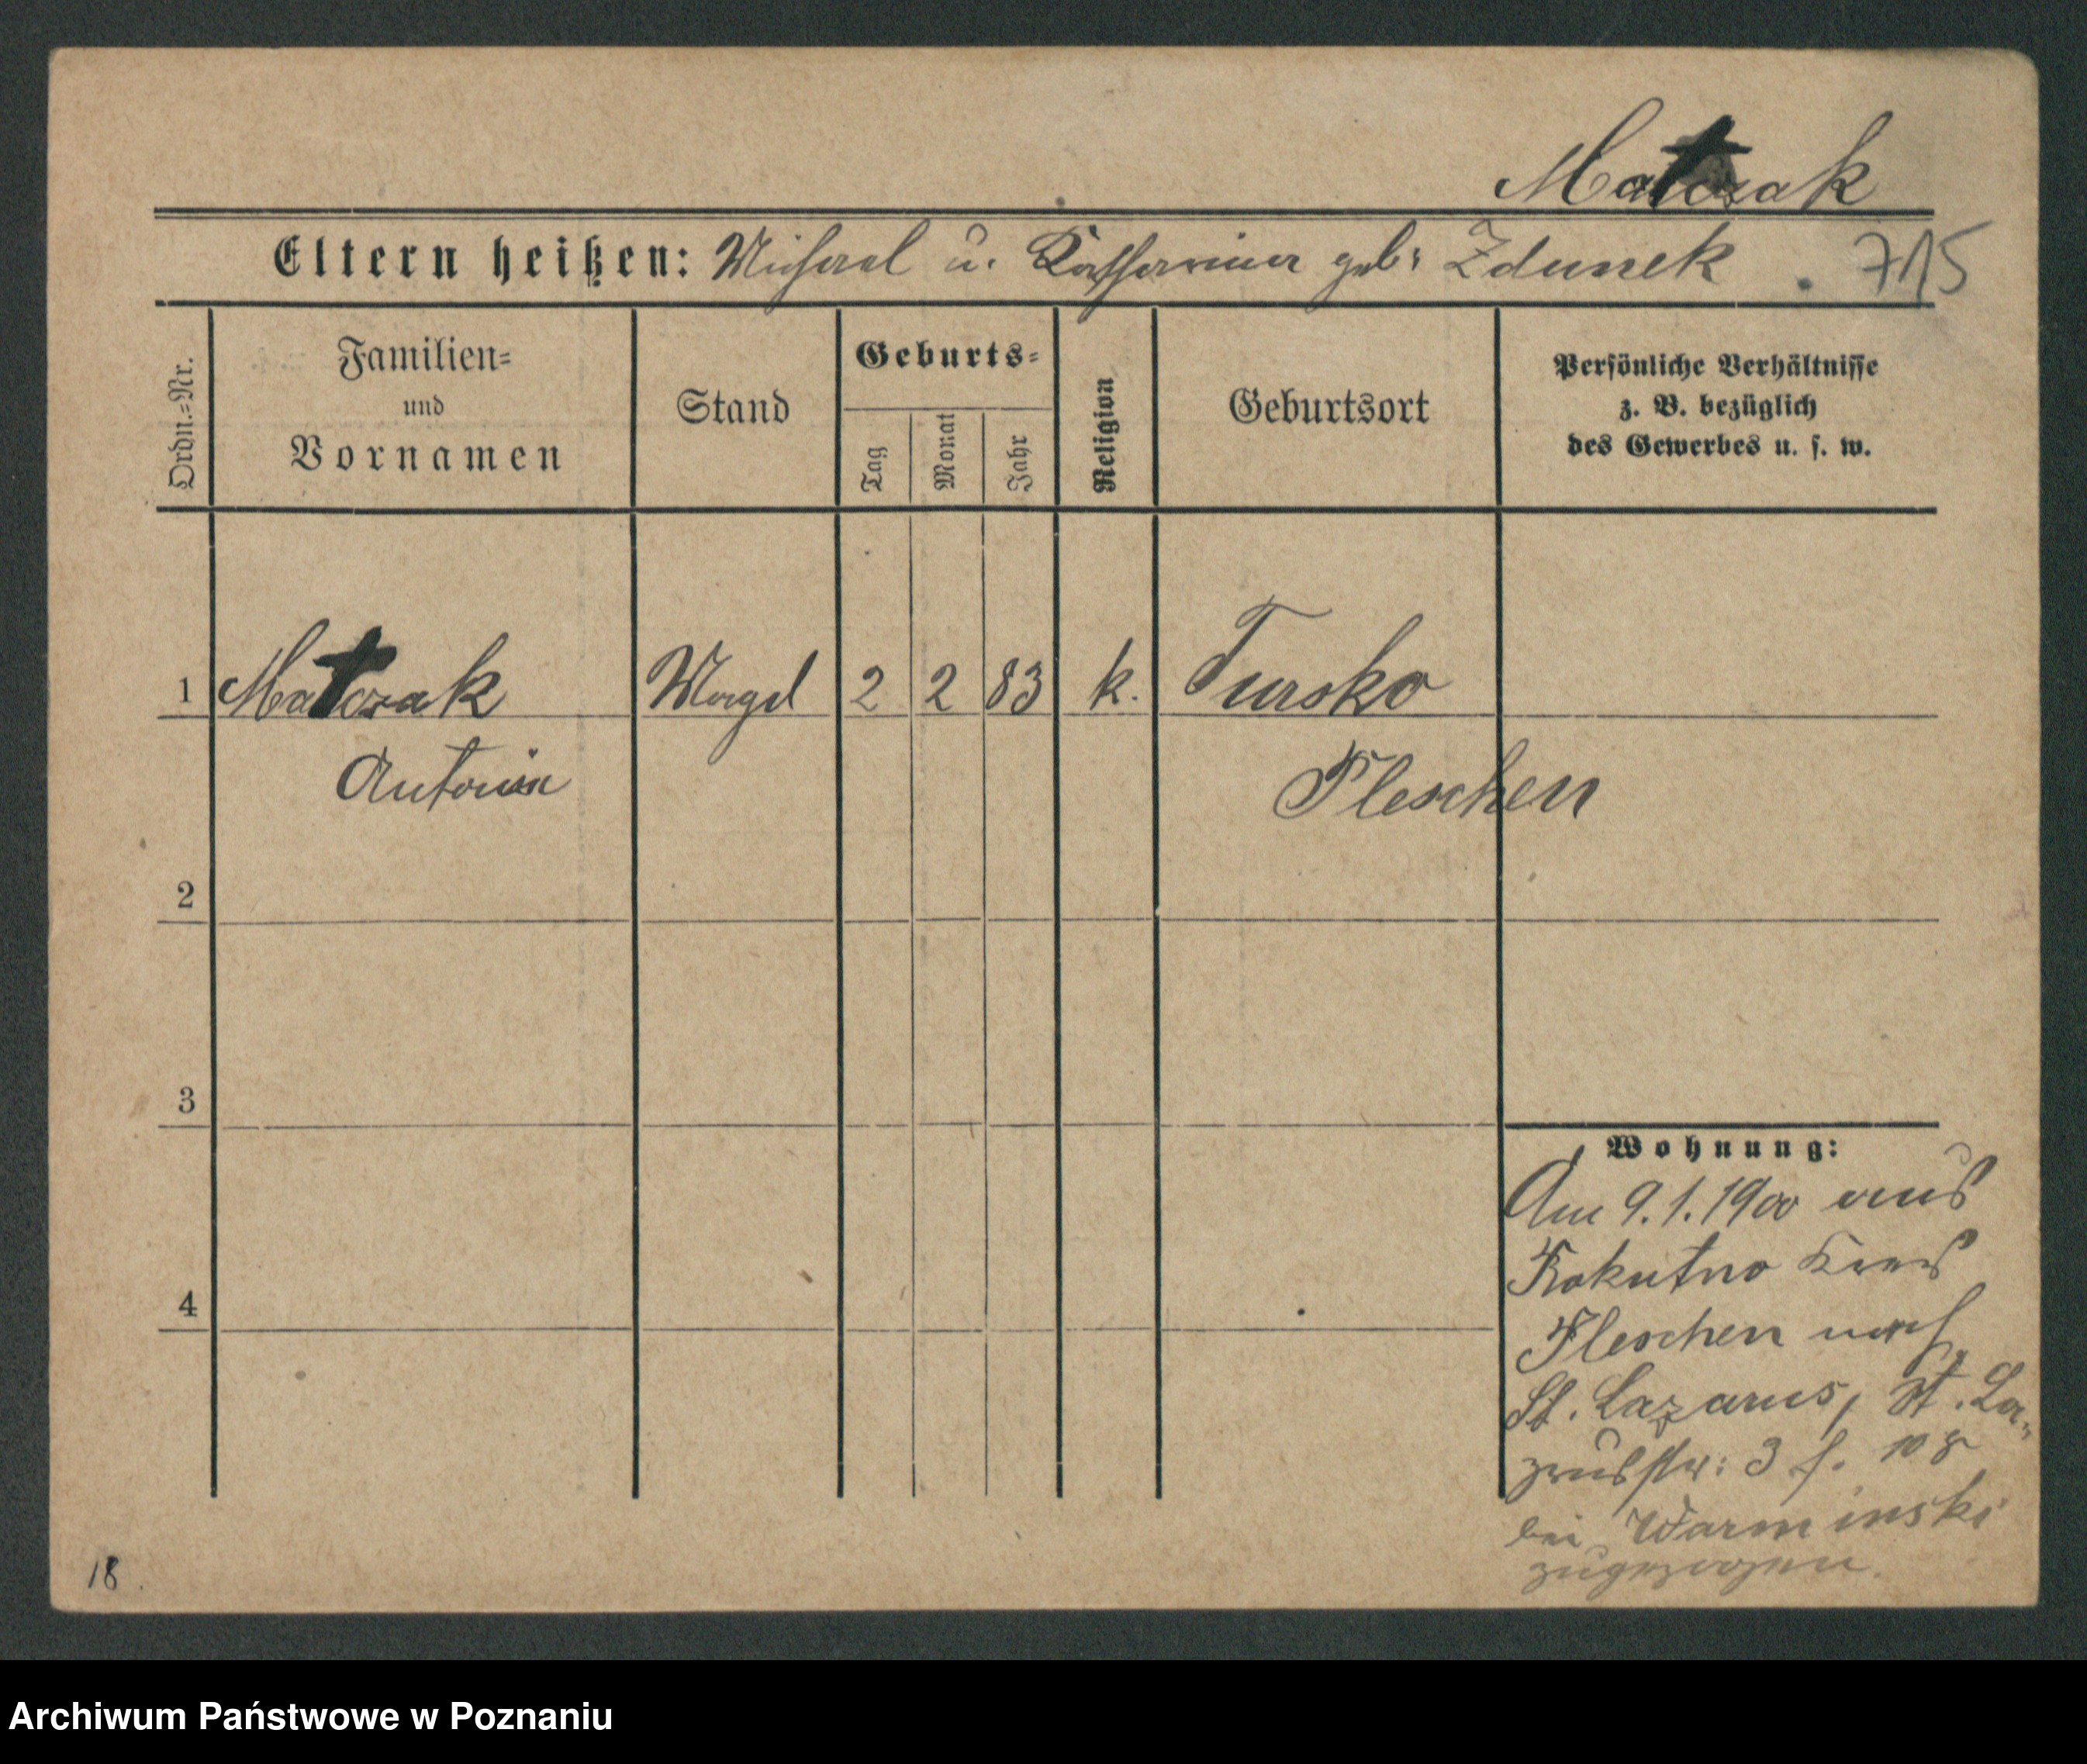 Matczak
Eltern heißen: Michael u. Katharina geb: Zdunek . 715
Ordn.=Nr.
Familien=
und
Vornamen
Stand
Geburts=
Tag
Monat
Jahr
Religion
Geburtsort
Persönliche Verhältnisse
z. B. bezüglich
des Gewerbes u. s. w.
1 Matczak Magd 2 2 83 k. Tursko
Antonia Pleschen
2
3
4
Wohnung:
Am 9.1.1900 aus
Kokutno Kreis
Pleschen nach
St. Lazarus, St. La=
zrusstr: 3
bei Warminski
zugezogen.
18
Archiwum Państwowe w Poznaniu